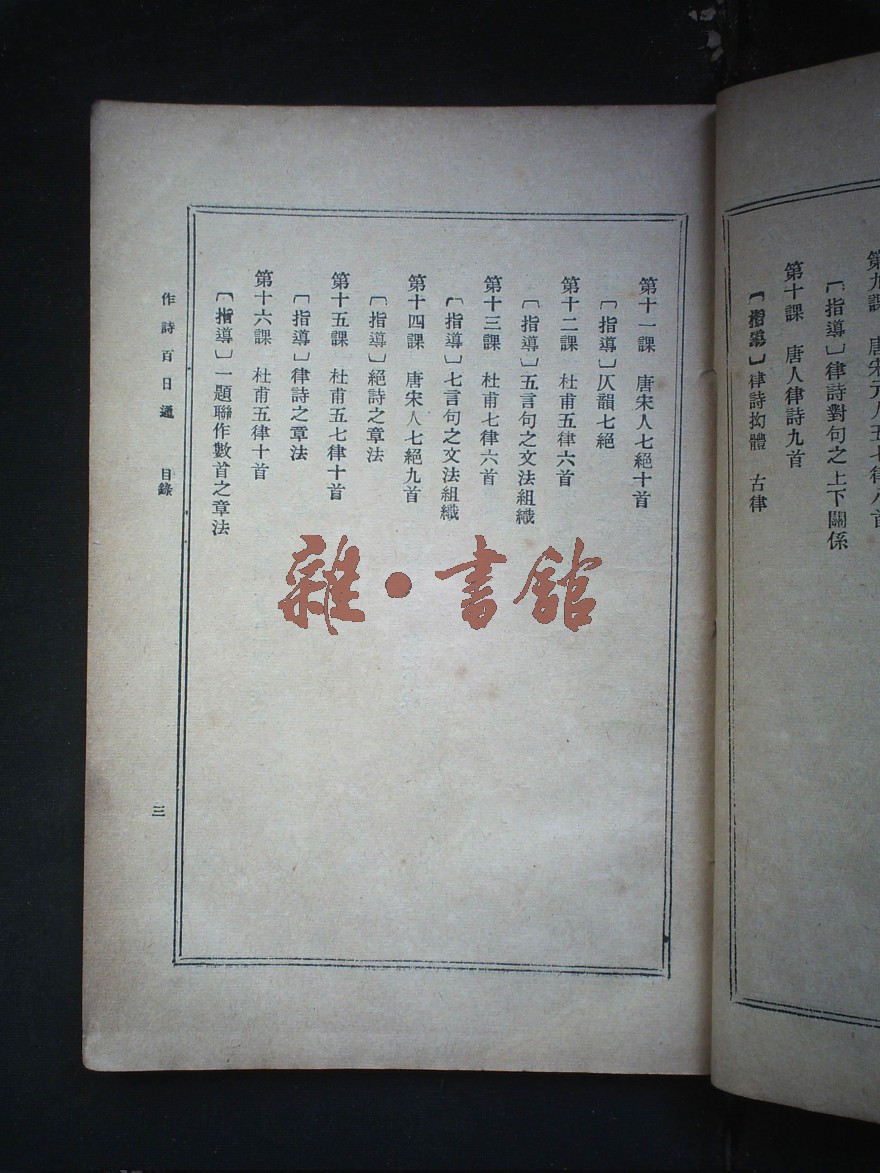 第九課　唐宋元人五七律八首
〔指導〕律詩對句之上下關係
第十課　唐人律詩九首
〔指導〕律詩拗體　古律
第十一課　唐宋人七絕十首
〔指導〕仄韻七絕
第十二課　杜甫五律六首
〔指導〕五言句之文法組織
第十三課　杜甫七律六首
〔指導〕七言句之文法組織
第十四課　唐宋人七絕九首
〔指導〕絕詩之章法
第十五課　杜甫五七律十首
〔指導〕律詩之章法
第十六課　杜甫五律十首
〔指導〕一題聯作數首之章法
作詩百日通　目錄　三
雜・書館